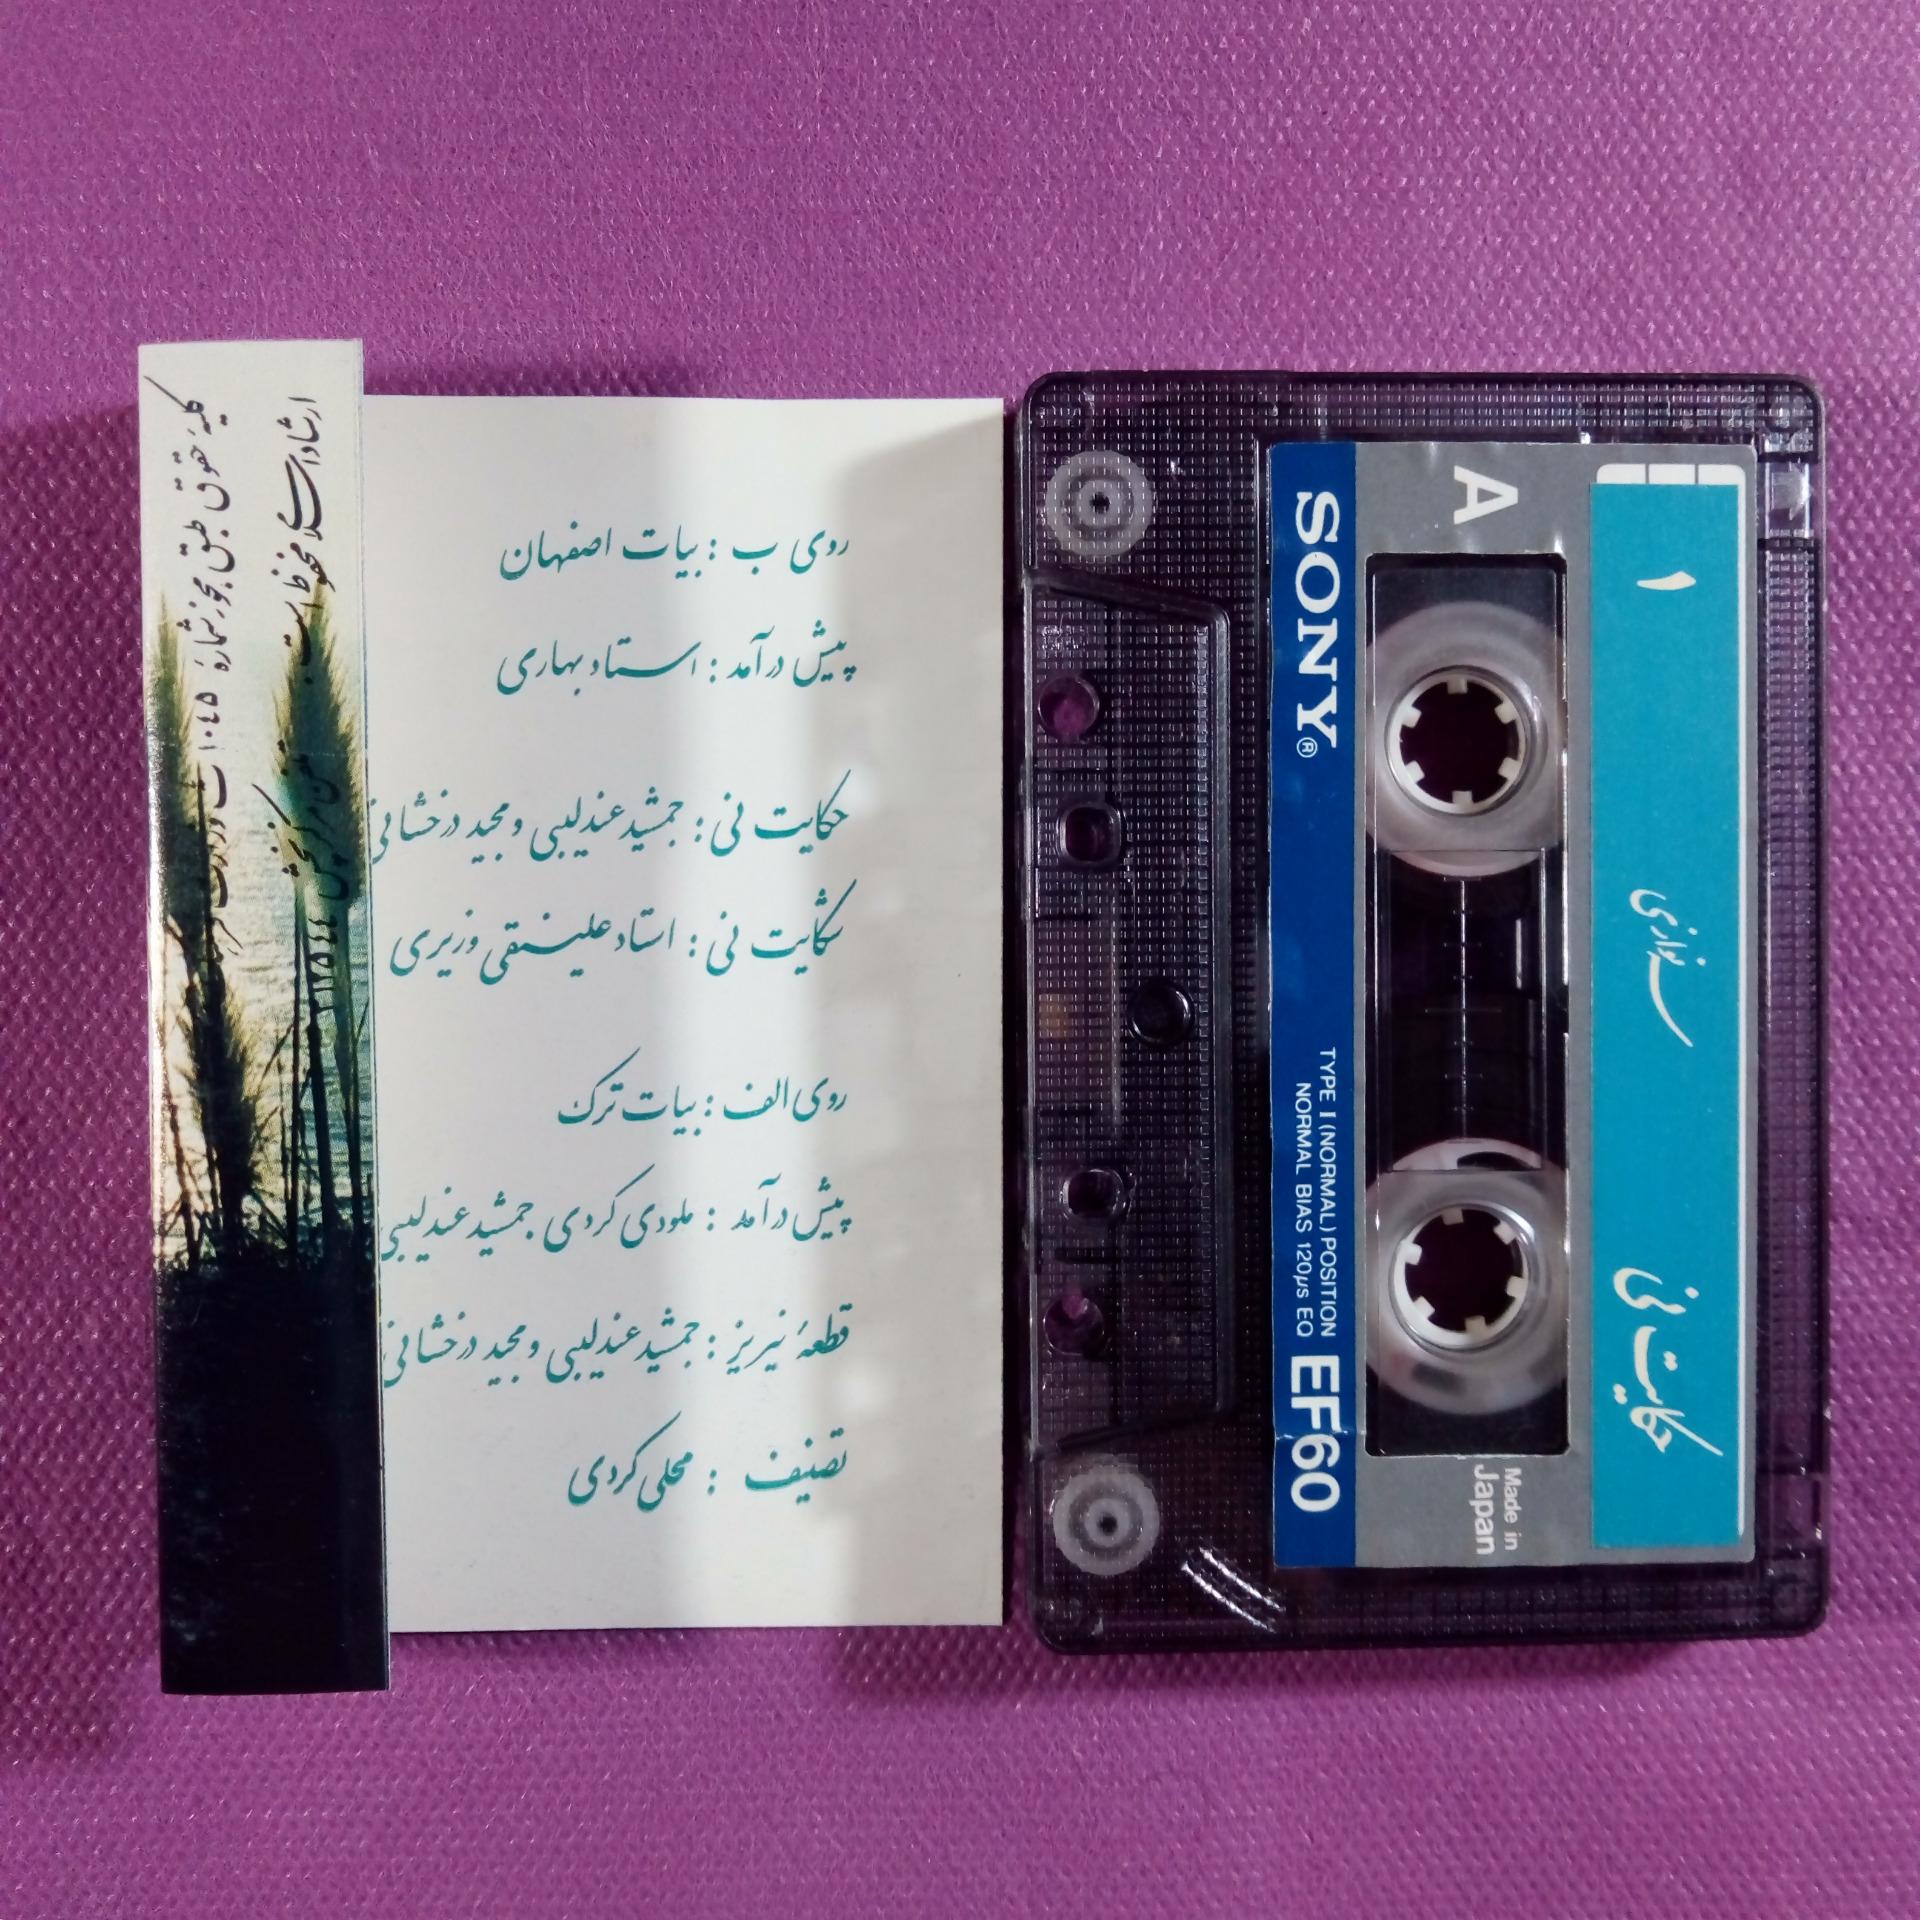 کلیهٔ حقوق طبق مجوز شمارهٔ ۱۰۴۵ ت وزارت فرهنگ
ارشاد اسلامی محفوظ است.
تلفن مرکز پخش
روی ب : بیات اصفهان
پیش درآمد : استاد بهاری
حکایت نی : جمشید عندلیبی و مجید درخشانی
شکایت نی : استاد علینقی وزیری
روی الف : بیات ترک
پیش درآمد : ملودی کردی جمشید عندلیبی
قطعهٔ نیریز : جمشید عندلیبی و مجید درخشانی
تصنیف : محلی کردی
A
SONY®
TYPE I (NORMAL) POSITION
NORMAL BIAS 120µs EQ
EF60
Made in
Japan
۱
حکایت نی